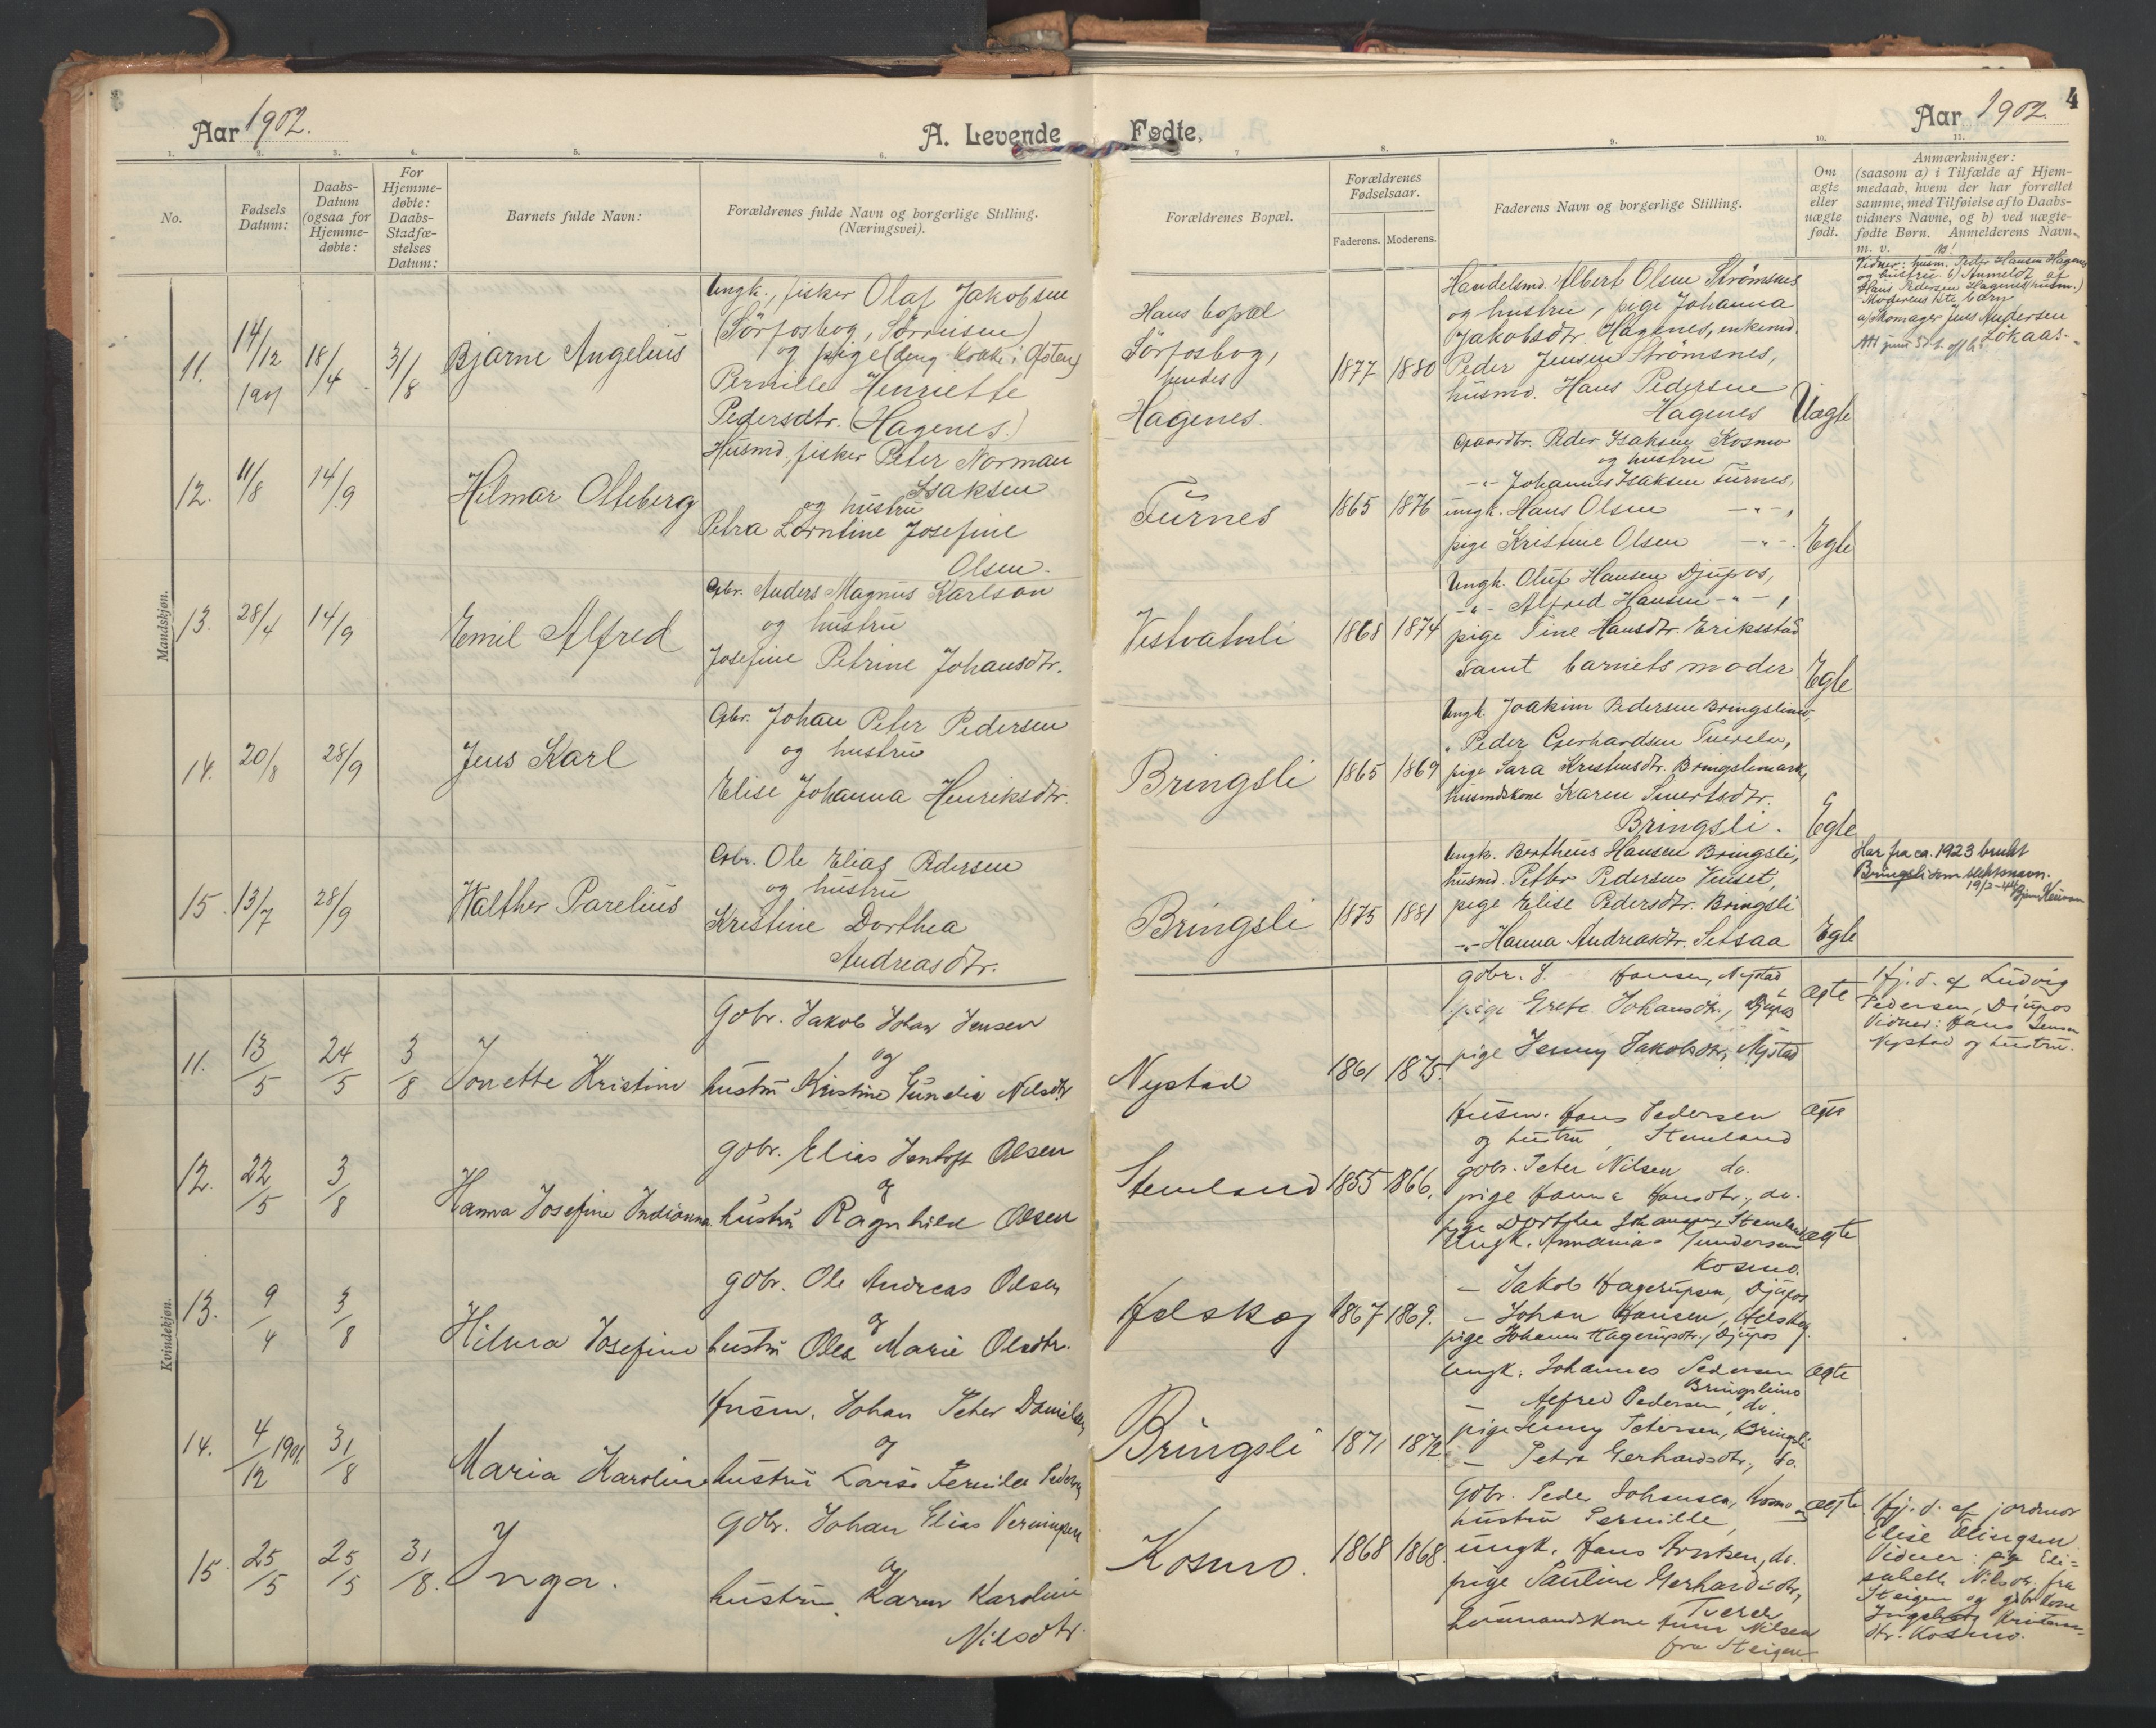 Aar 1902.
A. Levende
1. 2. 3. 4. 5. 6.
No.
Fødsels Datum:
Daabs-Datum (ogsaa for Hjemme-døbte:
For Hjemme-døbte: Daabs-Stadfæ-stelses Datum:
Barnets fulde Navn:
Forældrenes fulde Navn og borgerlige Stilling. (Næringsvei).
Mandskjøn.
11. 14/12 1901 18/4 31/8 Bjarne Angelius
Ungk., fisker Olaf Jakobsen
(Sörfosbog, Sörreisen)
og pige
Pernille Henriette
Pedersdtr. (Hagenes.)
12. 11/8 14/9 Hilmar Olteberg
Husmd., fisker Peter Norman
Isaksen
og hustru
Petra Lorntine Josefine
Olsen.
13. 28/4 14/9 Emil Alfred
Gbr. Anders Magnus Karlson
og hustru
Josefine Petrine Johansdtr.
14. 20/8 28/9 Jens Karl
Gbr. Johan Peter Pedersen
og hustru
Elise Johanna Henriksdtr.
15. 13/7 28/9 Walther Parelius
Gbr. Ole Elias Pedersen
og hustru
Kristine Dorthea
Andreasdtr.
Kvindekjøn.
11. 13/5 24/5 3/8 Jonette Kristine
Gbr. Jakob Johan Jensen
og
hustru Kristine Gundia Nilsdtr.
12. 22/5 3/8 Hanna Josefine Indianna
gbr. Elias Jentoft Olsen
og
hustru Ragnhild Olsen
13. 9/4 3/8 Hilma Josefine
gbr. Ole Andreas Olsen
og
hustru Olea Marie Olsdtr.
14. 4/12 1901. 31/8 Maria Karoline
Husm. Johan Peter Danielsen
og
hustru Lovise Pernilla Pedersen
15. 25/5 25/5 31/8. Inga.
gbr. Johan Elias Verningsen
og
hustru Karen Karoline
Nilsdtr.
Fødte.
Aar 1902.
4
7. 8. 9. 10. 11.
Forældrenes Bopæl.
Forældrenes Fødselsaar.
Faderens. Moderens.
Faderens Navn og borgerlige Stilling.
Om ægte eller uægte født.
Anmærkninger:
(saasom a) i Tilfælde af Hjem-
medaab, hvem der har forrettet
samme, med Tilføielse af to Daabs-
vidners Navne, og b) ved uægte-
fødte Børn. Anmelderens Navn
m. v.
Hans bopæl
Sörfosbog,
hendes
Hagenes.
1877 1880
Handelsmd. Albert Olsen Strømsnes
og hustru, pige Johanna
Jakobsdtr. Hagenes, enkemd.
Peder Jensen Strømsnes,
husmd. Hans Pedersen
Hagenes
Uægte
Vidner: husm. Peder Hansen Hagenes
og hustru. b) Anmeldt af
Hans Pedersen Hagenes (husm.)
Moderens 1ste barn
a) Skomager Jens Andersen
Lökaas.
Furnes
1865 1876
Gaardbr. Peder Isaksen Kosmo
og hustru
-"- Johannes Isaksen Furnes,
ungk. Hans Olsen -"-,
pige Kristine Olsen -"-.
Egte
Vestvatnli
1868 1874
Ungk. Oluf Hansen Djupos,
-"- Alfred Hansen -"-,
pige Tine Hansdtr. Eriksstad
samt barnets moder
Egte
Bringsli
1865 1869
Ungk. Joakim Pedersen Bringslimo,
" Peder Gerhardsen Tverelv,
pige Sara Kristensdtr. Bringslimark,
husmdskone Karen Sivertsdtr.
Bringsli.
Egte
Bringsli
1875 1881
Ungk. Bertheus Hansen Bringsli,
husmd. Petter Pedersen Venset,
pige Elise Pedersdtr. Bringsli
-"- Hanna Andreasdtr. Setsaa
Egte
Har fra ca. 1923 brukt
Bringsli som slektsnavn.
19/2-44
Nystad
1861 1875.
gbr. J. Hansen, Nystad,
pige Grete Johansdtr., Djupos
pige Jenny Jakobsdtr., Nystad
Ægte
Hj. d. af Ludvig
Pedersen, Djupos
Vidner: Hans Jensen
Nystad og hustru.
Stemland
1855 1866.
Husm. Hans Pedersen
og hustru, Stemland
gbr. Peter Nilsen do.
pige Hanna Hansdtr., do.
pige Dorthea Johansen, Stemland
Ægte
Hælskog
1867 1869.
Ungk. Annanias Gundersen
Kosmo.
– Jakob Hagerupsen, Djupos
– Johan Hansen, Hælskog.
pige Johanna Hagerupsdtr., Djupos
Ægte
Bringsli
1871 1872
Ungk. Johannes Pedersen
Bringslimo
– Alfred Pedersen, do.
pige Jenny Petersen, Bringsli
– Petra Gerhardsdtr., do.
Ægte
Kosmo.
1868 1868.
Gbr. Peder Johansen, Kosmo og
hustru Pernille,
ungk. Hans Arntsen, do.
pige Pauline Gerhardsdtr.,
Tverelv
husmandskone Anna Nilsen
fra Steigen.
Ægte
Hj. d. af jordmor
Elise Elingsen
Vidner: pige Eli-
sabeth Nilsdtr. fra
Steigen og gbrkone
Ingeborg Kristens-
dtr. Kosmo.